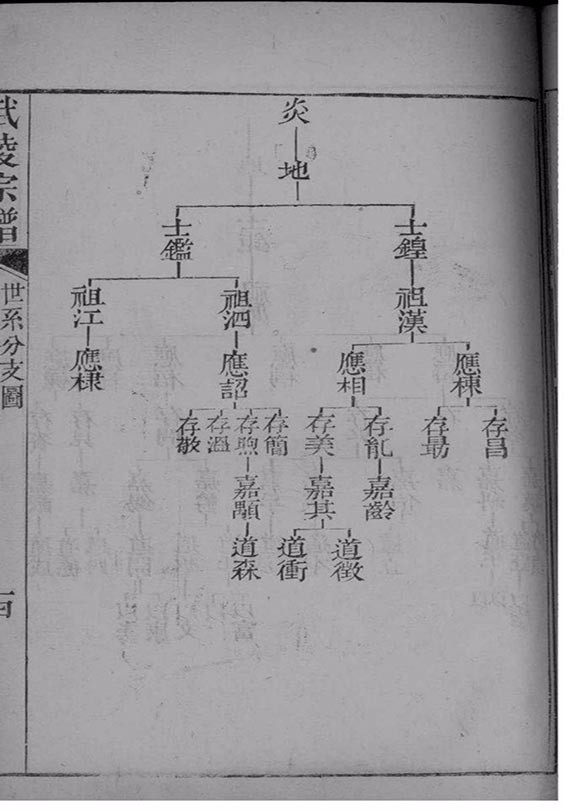 炎
地
士鍠
士鑑
祖漢
祖泗
祖江
應棟
應相
應詔
應棣
存昌
存勗
存能
存美
存簡
存煦
存溫
存敬
嘉齡
嘉其
嘉顒
道徵
道衝
道森
武陵宗譜
世系分支圖